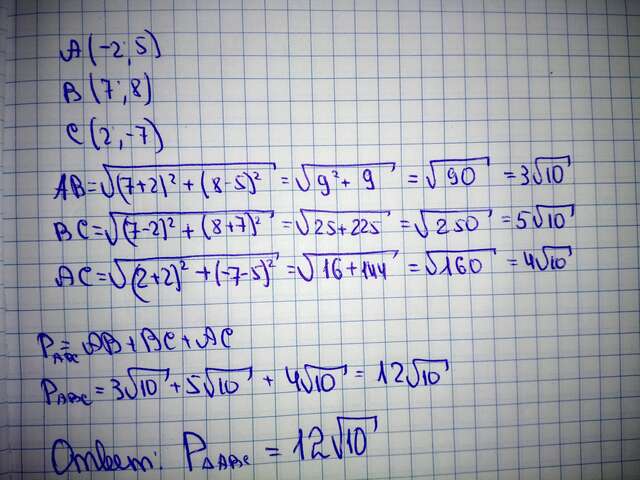 A(-2; 5)
B(7; 8)
C(2; -7)
AB=√((7+2)²+(8-5)²)=√(9²+9)=√90=3√10
BC=√((7-2)²+(8+7)²)=√(25+225)=√250=5√10
AC=√((2+2)²+(-7-5)²)=√(16+144)=√160=4√10
P_ABC=AB+BC+AC
P_ABC=3√10+5√10+4√10=12√10
Ответ: P_ΔABC=12√10